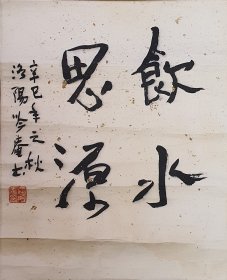 飲水
思源
辛巳年之秋
洛陽